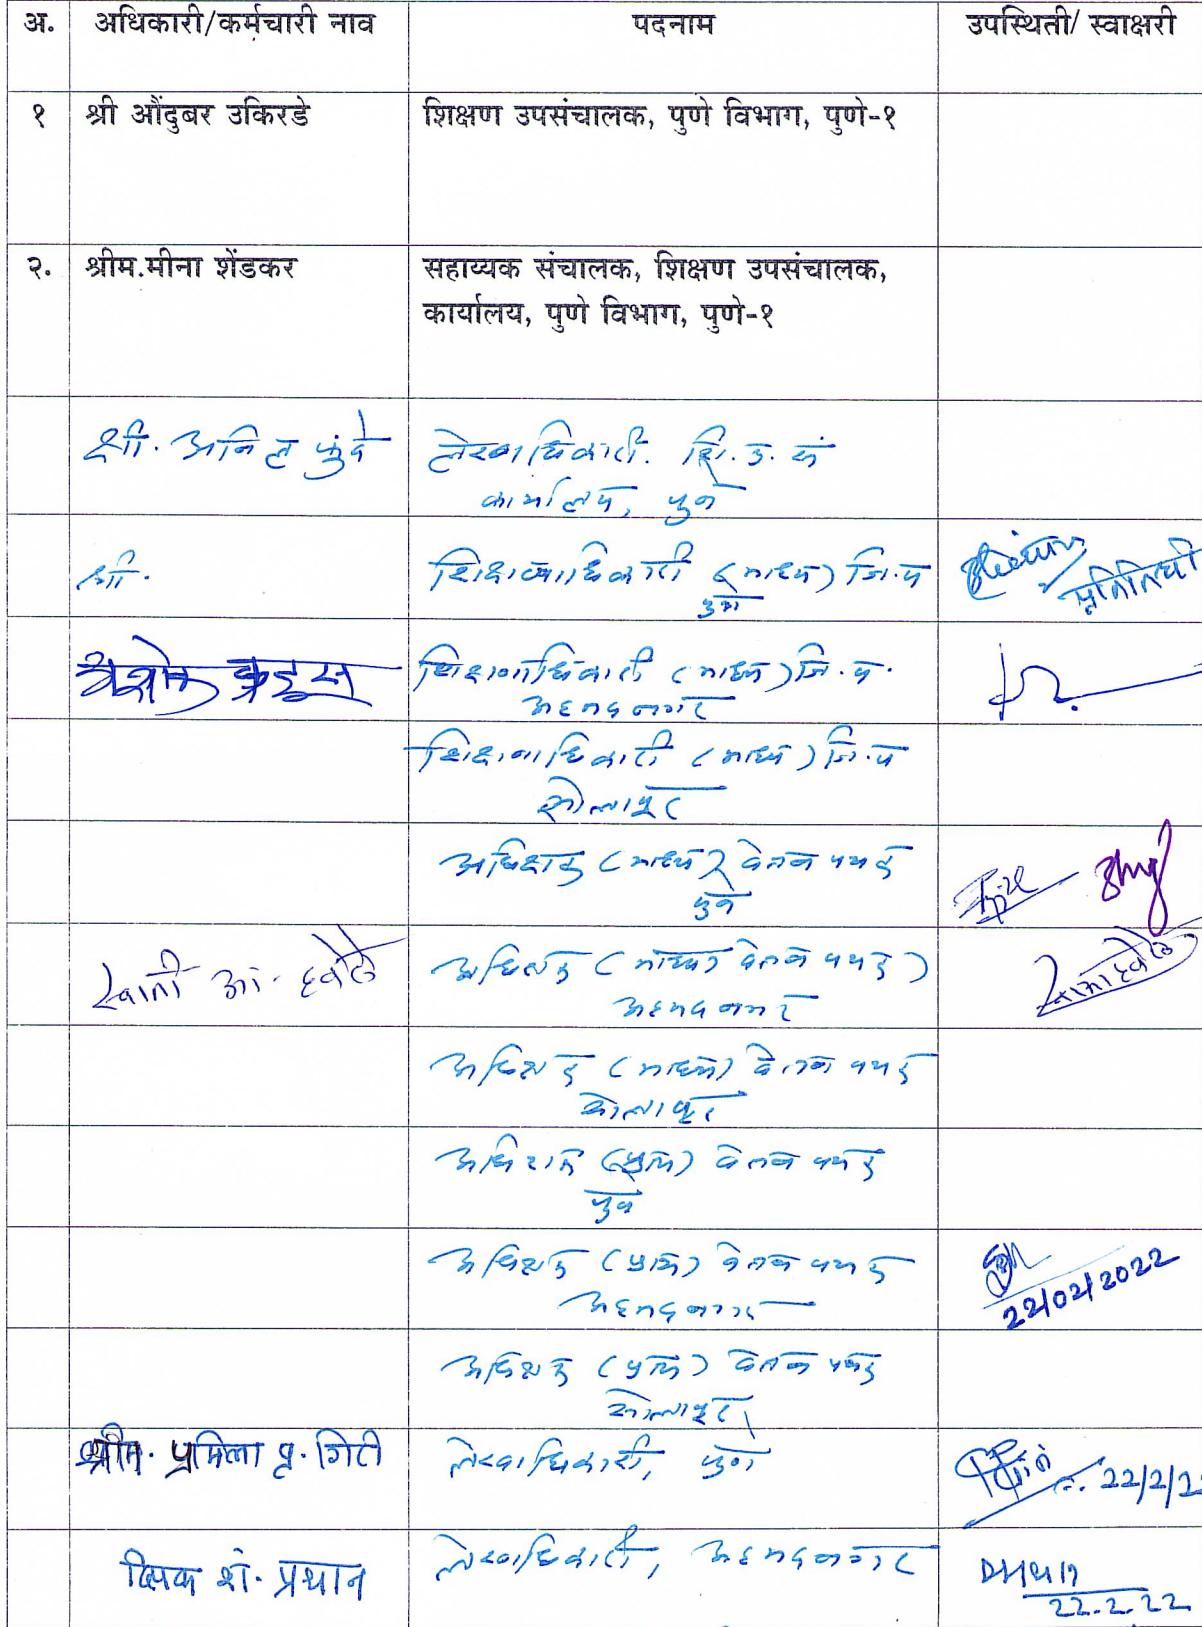 अ. अधिकारी/कर्मचारी नाव पदनाम उपस्थिती/ स्वाक्षरी
१ श्री औंदुबर उकिरडे शिक्षण उपसंचालक, पुणे विभाग, पुणे-१
२. श्रीम.मीना शेंडकर सहाय्यक संचालक, शिक्षण उपसंचालक,
कार्यालय, पुणे विभाग, पुणे-१
श्री. अनिल लेखाधिकारी. शि.उ.सं
कार्यालय, पुणे
श्री. शिक्षणाधिकारी (माध्य) जि.प प्रतिनिधी
पुणे
अशोक कडूस शिक्षणाधिकारी (माध्य) जि.प.
अहमदनगर
शिक्षणाधिकारी (माध्य) जि.प
सोलापूर
अधिक्षक (माध्य) वेतन पथक
पुणे
स्वाती अ. हवेले अधिक्षक (माध्य) वेतन पथक)
अहमदनगर
अधिक्षक (माध्य) वेतन पथक
सोलापूर
अधिक्षक (प्राथ) वेतन पथक
पुणे
अधिक्षक (प्राथ) वेतन पथक
अहमदनगर 22/02/2022
अधिक्षक (प्राथ) वेतन पथक
सोलापूर
श्रीम. प्रमिला प्र. गिरी लेखाधिकारी, पुणे 22/2/22
दिपक शे. प्रधान लेखाधिकारी, अहमदनगर
22.2.22